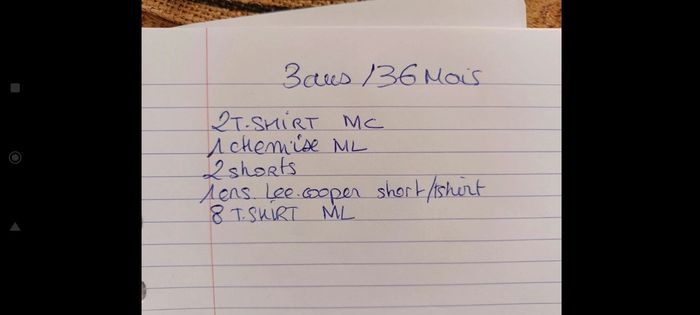 3 ans / 36 Mois
2 T.SHIRT MC
1 chemise ML
2 shorts
1 ens. Lee.cooper short/tshirt
8 T.SHIRT ML